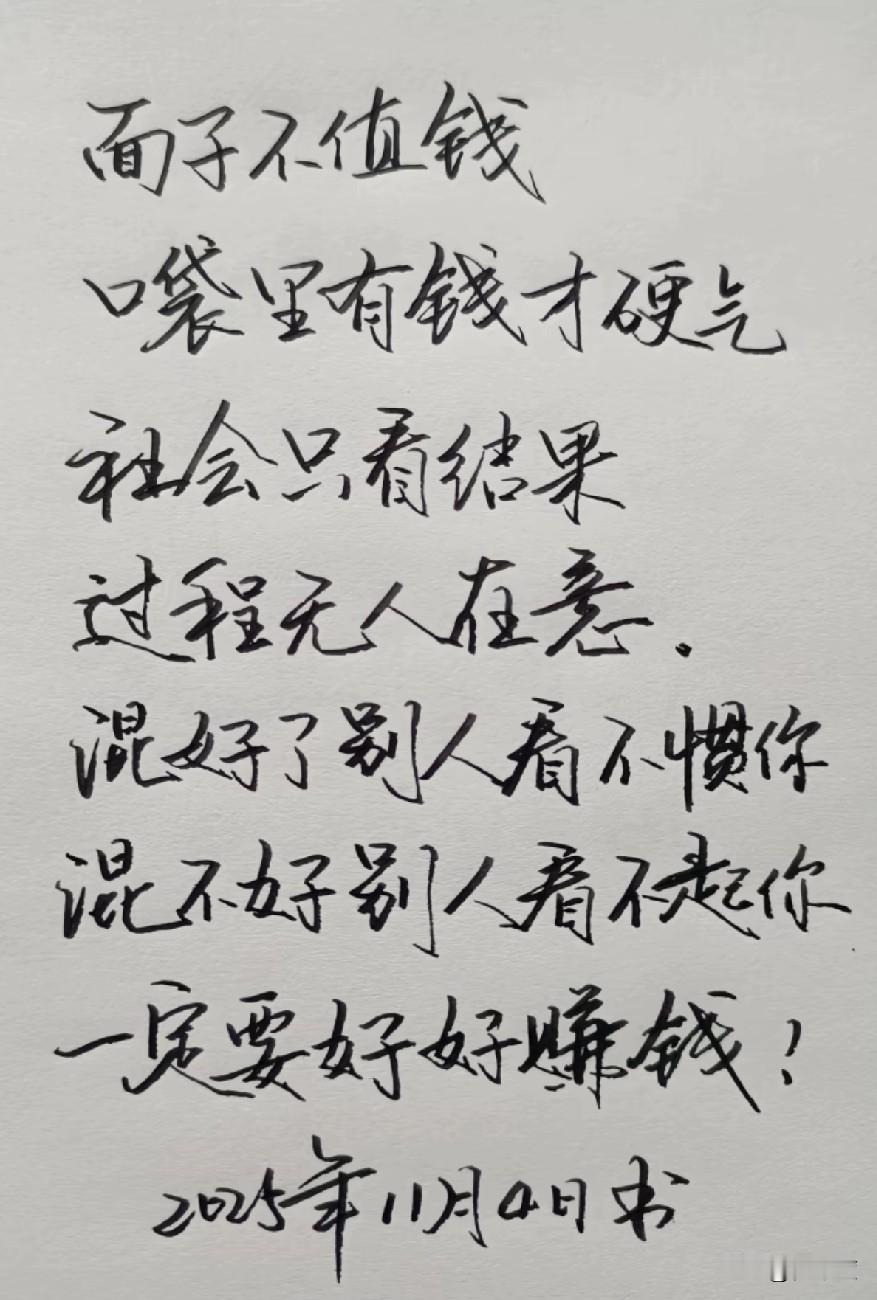 面子不值钱
口袋里有钱才硬气
社会只看结果
过程无人在意.
混好了别人看不惯你
混不好别人看不起你
一定要好好赚钱!
2025年11月4日书